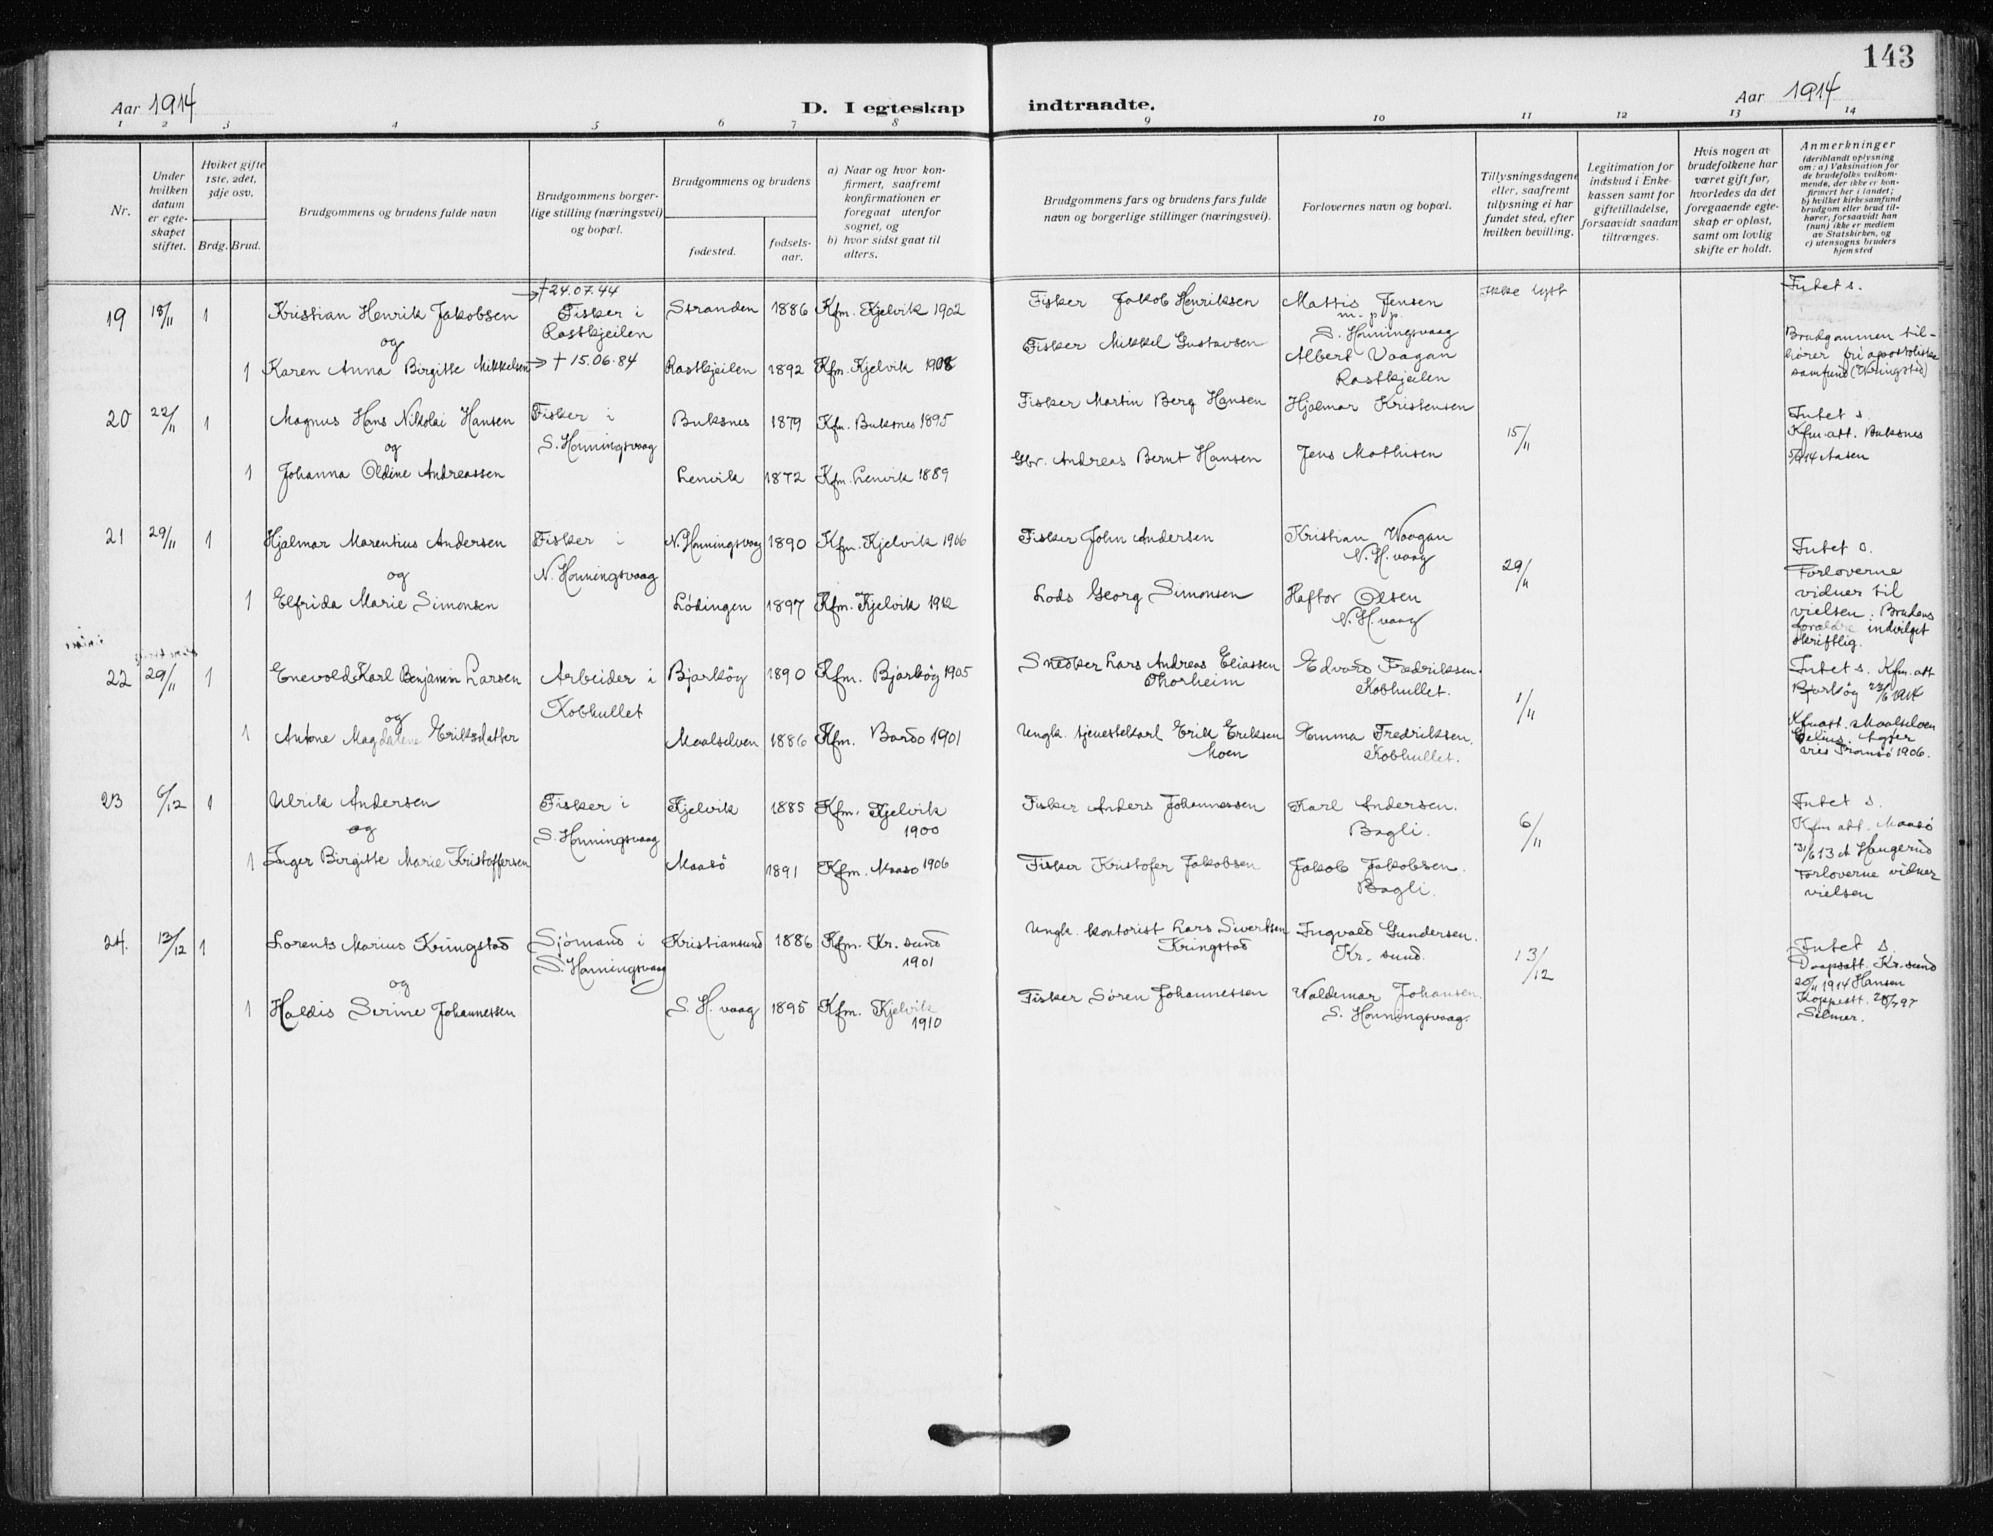 143
Aar 1914
D. I egteskap indtraadte.
Aar 1914
1 2 3 4 5 6 7 8 9 10 11 12 13 14
Nr.
Under hvilken datum er egteskapet stiftet.
Hviket gifte 1ste, 2det, 3dje osv.
Brdg. Brud.
Brudgommens og brudens fulde navn
Brudgommens borgerlige stilling (næringsvei) og bopæl.
Brudgommens og brudens
fødested.
fødselsaar.
a) Naar og hvor konfirmert, saafremt konfirmationen er foregaat utenfor sognet, og
b) hvor sidst gaat til alters.
Brudgommens fars og brudens fars fulde navn og borgerlige stillinger (næringsvei).
Forlovernes navn og bopæl.
Tillysningsdagene eller, saafremt tillysning ei har fundet sted, efter hvilken bevilling.
Legitimation for indskud i Enkekassen samt for giftetilladelse, forsaavidt saadan tiltrænges.
Hvis nogen av brudefolkene har været gift før, hvorledes da det foregaaende egteskap er opløst, samt om lovlig skifte er holdt.
Anmerkninger
(deriblandt oplysning om: a) Vaksination for de brudefolks vedkommende, der ikke er konfirmert her i landet; b) hvilket kirkesamfund brudgom eller brud tilhører, forsaavidt han (hun) ikke er medlem av Statskirken, og c) utensogns bruders hjemsted
19 18/11 1 Kristian Henrik Jakobsen → † 24.07.44 Fisker i Rastkjeilen Stranden 1886 Kfm. Kjelvik 1902 Fisker Jakob Henriksen Mattis Jensen m. p. p. S. Honningsvaag Ikke lyst Intet s.
og
1 Karen Anna Birgitte Mikkelsen → † 15.06.84 Rastkjeilen 1892 Kfm. Kjelvik 1908 Fisker Mikkel Gustavsen Albert Vaagan Rastkjeilen Brudgommen tilhører fri apostoliske samfund
20 22/11 1 Magnus Hans Nikolai Hansen Fisker i S. Honningsvaag Buksnes 1879 Kfm. Buksnes 1895 Fisker Martin Berg Hansen Hjalmar Kristensen 15/11 Intet s. Kfm. att. Buksnes
og
1 Johanna Oldine Andreassen Lenvik 1872 Kfm. Lenvik 1889 Gbr. Andreas Bernt Hansen Jens Mathisen
21 29/11 1 Hjalmar Marentius Andersen Fisker i N. Honningsvaag N. Honningsvaag 1890 Kfm. Kjelvik 1906 Fisker John Andersen Kristian Waagan N. H. vaag 29/11 Intet s. Forloverne vidner til vielsen. Brudens forældre indvilget skriftlig.
og
1 Elfrida Marie Simonsen Lödingen 1897 Kfm. Kjelvik 1912 Lods Georg Simonsen Haftor Olsen N. H. vaag
22 29/11 1 Enevold Karl Benjamin Larsen Arbeider i Kobhullet Bjarköy 1890 Kfm. Bjarköy 1905 Snedker Lars Andreas Eliassen Thorheim Edvard Fredriksen. Kobhullet. 1/11 Intet s. Kfm. att Bjarköy 23/6 1914
og
1 Antone Magdalene Eriksdatter Maalselven 1886 Kfm. Bardo 1901 Ungk. tjenestekarl Erik Eriksen Moen Emma Fredriksen. Kobhullet. Kfmatt. Maalselven Tromsö 1906.
23 6/12 1 Ulrik Andersen Fisker i S. Honningsvaag Kjelvik 1885 Kfm. Kjelvik 1900 Fisker Anders Johannessen Karl Andersen. Bagli. 6/11 Intet s. Kfm att. Maasö 31/6 13 A Haugerud Forloverne vidner vielsen
og
1 Inger Birgitte Marie Kristoffersen Maasö 1891 Kfm. Maaso 1906 Fisker Kristofer Jakobsen Jakob Jakobsen. Bagli.
24. 13/12 1 Lorents Marius Kringstad Sjömand i S. Honningsvaag Kristiansund 1886 Kfm. Kr. sund 1901 Ungk. kontorist Lars Sivertsen Kringstad Ingvald Gundersen. Kr. sund. 13/12 Intet s. Daapsatt. Kr. sund 20/11 1914 Hansen Koppeatt. 28/7 97 Selmer.
og
1 Haldis Serine Johannessen S. H. vaag 1895 Kfm. Kjelvik 1910 Fisker Sören Johannessen Waldemar Johansen. S. Honningsvaag.